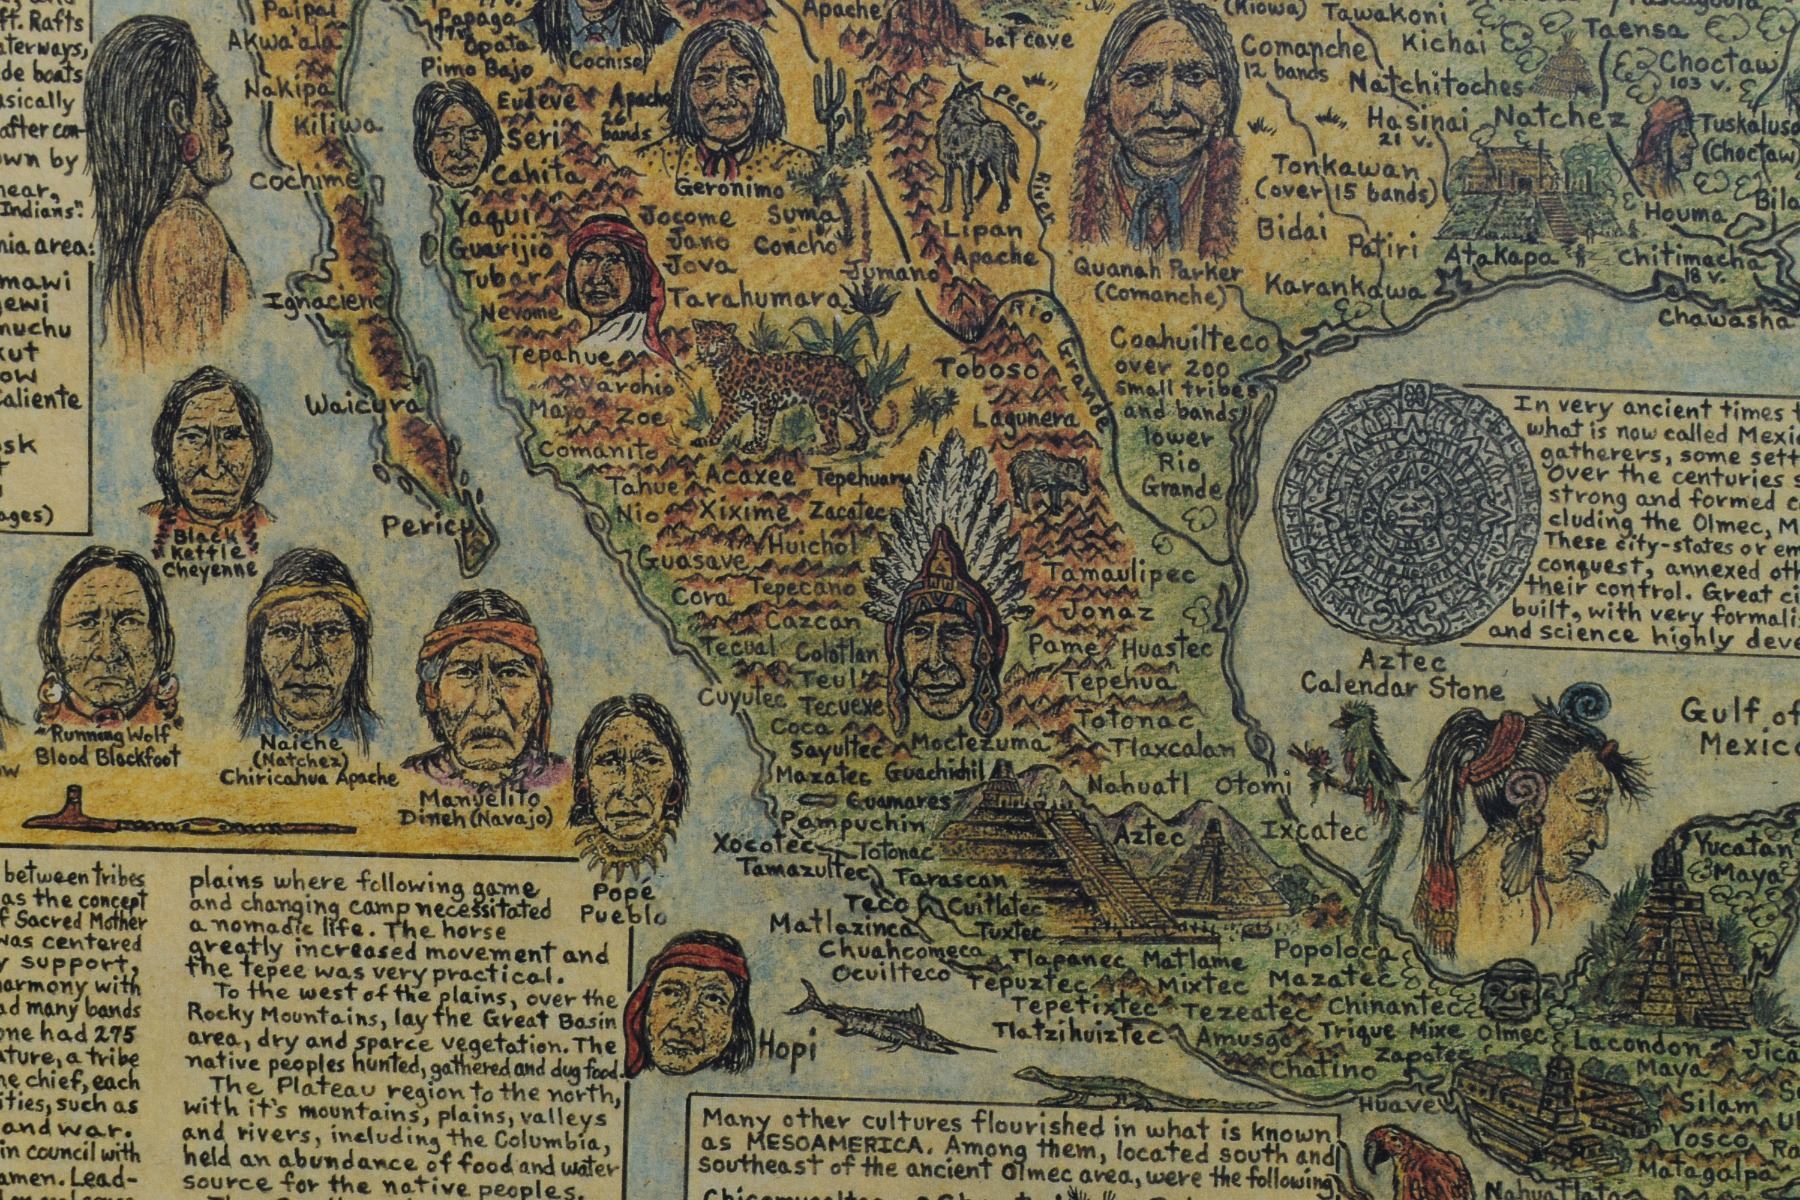 ft. Rafts
terways,
de boats
sically
after con-
own by
near,
Indians".
nia area:
mawi
muchu
Caliente
ages)
Paipai
Akwa'ala
Nakipa
Kiliwa
Cochime
Ignacieno
Waicura
Pericu
Papago
Opata
Pimo Bajo
Eudeve
Seri
Cahita
Yaqui
Guarijio
Tubar
Nevome
Tepahue
Varohio
Mayo Zoe
Comanito
Tahue
Nio
Guasave
Cochise
Apache
26
bands
Geronimo
Jocome
Jano
Jova
Suma
Concho
Jumano
Tarahumara
Apache
bat cave
Pecos
River
Lipan
Apache
Toboso
Lagunera
Rio Grande
Quanah Parker
(Comanche)
(Kiowa) Tawakoni
Comanche
12 bands
Kichai
Natchitoches
Hasinai
21 v.
Natchez
Tonkawan
(over 15 bands)
Bidai
Patiri
Karankawa
Atakapa
Taensa
Choctaw
103 v.
Tuskalusa
(Choctaw)
Houma
Chitimacha
18 v.
Chawasha
Coahuilteco
over 200
small tribes
and bands
lower
Rio
Grande
Acaxee Tepehuan
Xixime Zacatec
Huichol
Tepecano
Cora
Cazcan
Tecual Colotlan
Teul
Cuyutec Tecuexe
Coca
Sayultec Moctezuma
Mazatec Guachichil
Guamares
Pampuchin
Xocotec Totonac
Tamazultec Tarascan
Teco Cuitlatec
Matlazinca Tuxtec
Chuahcomeca
Ocuilteco
Tlapanec Matlame
Tepuztec Mixtec
Tepetixtec Tezeatec
Tlatzihuiztec
Amusgo
Chatino
Tamaulipec
Jonaz
Pame Huastec
Tepehua
Totonac
Tlaxcalan
Nahuatl Otomi
Aztec
Ixcatec
Popoloca
Mazatec
Chinantec
Trique Mixe Olmec
Zapotec
Huave
Lacondon
Maya
Silam
Yosco
Matagalpa
Yucatan
Maya
Aztec
Calendar Stone
Gulf of
Mexico
In very ancient times
what is now called Mexic
gatherers, some sett
Over the centuries s
strong and formed c
cluding the Olmec, M
These city-states or em
conquest, annexed oth
their control. Great ci
built, with very formali
and science highly deve
Black
Kettle
Cheyenne
Running Wolf
Blood Blackfoot
Naiche
(Natchez)
Chiricahua Apache
Manuelito
Dineh (Navajo)
Popé
Pueblo
Hopi
between tribes
as the concept
f Sacred Mother
was centered
y support,
harmony with
ad many bands
one had 275
ature, a tribe
ne chief, each
ities, such as
and war.
in council with
amen. Lead-
plains where following game
and changing camp necessitated
a nomadic life. The horse
greatly increased movement and
the tepee was very practical.
To the west of the plains, over the
Rocky Mountains, lay the Great Basin
area, dry and sparce vegetation. The
native peoples hunted, gathered and dug food.
The Plateau region to the north,
with it's mountains, plains, valleys
and rivers, including the Columbia,
held an abundance of food and water
source for the native peoples.
Many other cultures flourished in what is known
as MESOAMERICA. Among them, located south and
southeast of the ancient Olmec area, were the following